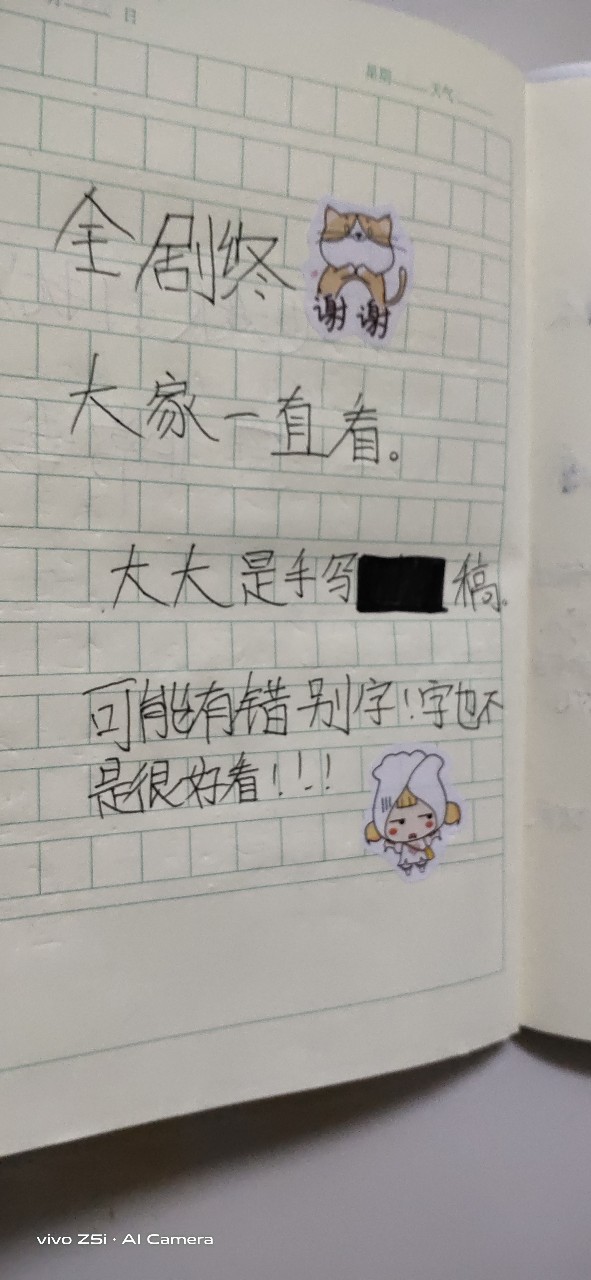 月 日
星期 天气
全剧终
谢谢
大家一直看。
大大是手写 稿。
可能有错别字!字也不
是很好看!!!
vivo Z5i · AI Camera